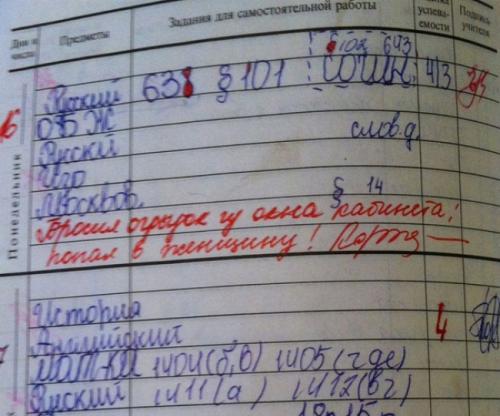 Дни и числа Предметы Задания для самостоятельной работы успева-емости Подпись учителя
§ 102 643
Русский 638 § 101 сочин. 4/3
16
ОБЖ
Русский слов.д.
Изо
Москвов. § 14
Понедельник
Бросил огрызок из окна кабинета!
попал в женщину!
История
Английский 4
МАТ-КА 1404(б,в) 1405(где)
Русский 1411(а) 1412(вг)